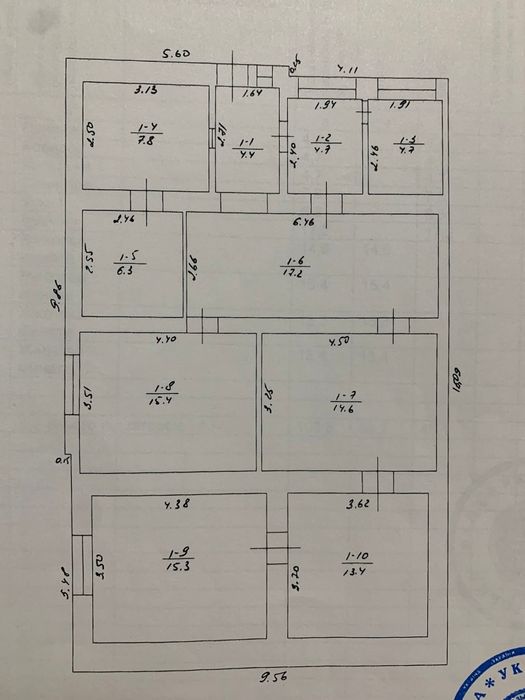 5.60
4.11
3.13
1.64
1.94
1.91
2.50
1-4
7.8
2.71
1-1
4.4
2.40
1-2
4.7
2.46
1-3
4.7
2.46
6.46
2.55
1-5
6.3
2.66
1-6
17.2
9.86
4.40
4.50
3.51
1-8
15.4
3.25
1-7
14.6
4.38
3.62
3.50
1-9
15.3
3.70
1-10
13.4
5.48
9.56
А * УК